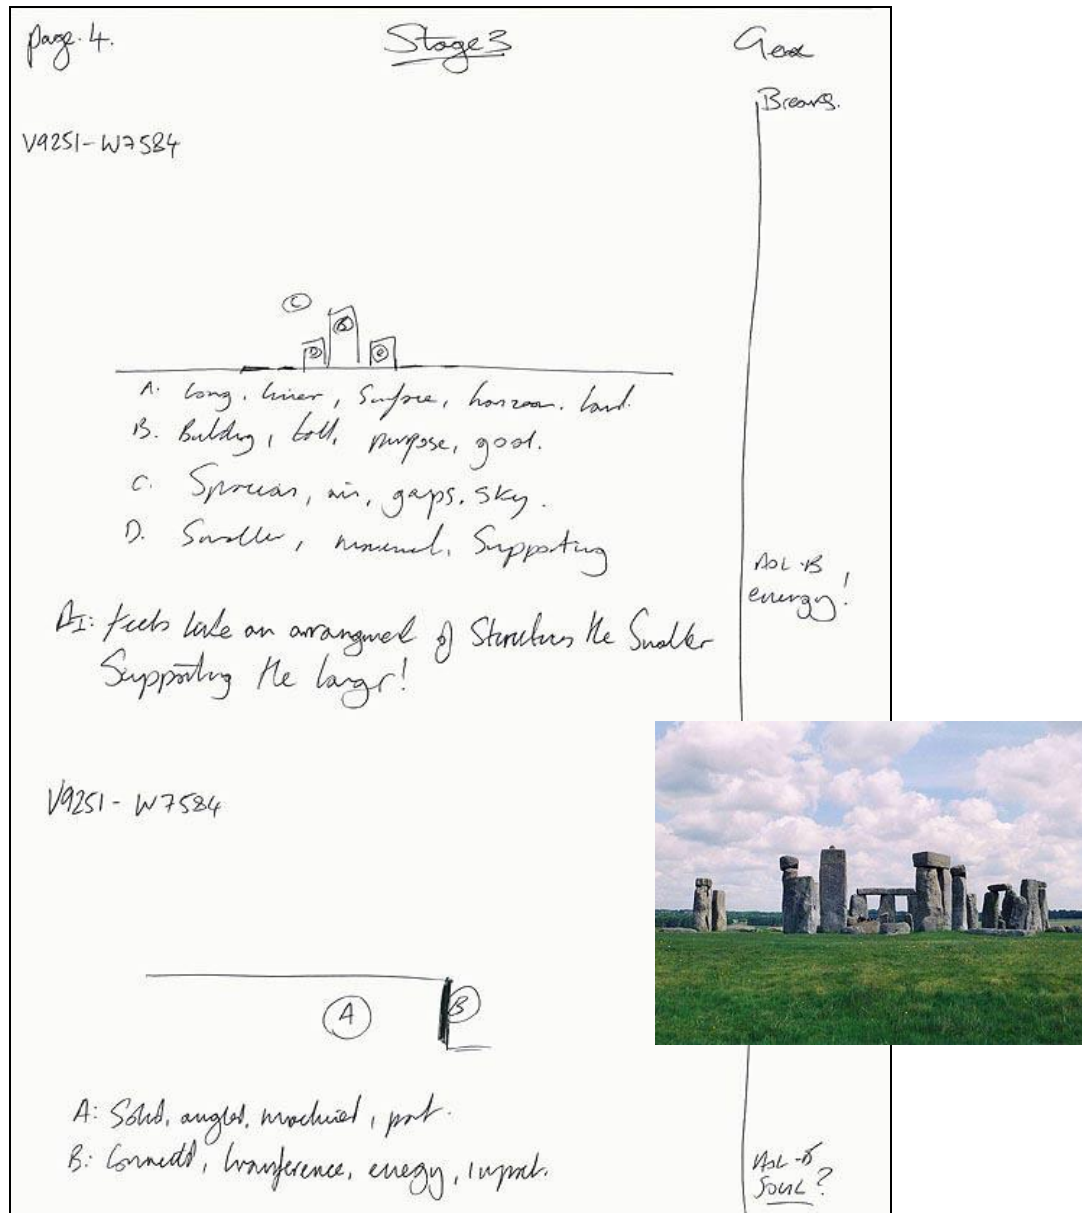 page 4.
Stage 3
Breaks.
V9251-W7584
C
B
D
A. Long, liner, Surface, horizon. land.
B. Building, tall, purpose, good.
C. Spacious, air, gaps. sky.
D. Smaller, Supporting
AOL-B
energy!
feels like an arrangment of Structures the Smaller
Supporting the larger!
V9251-W7584
A
B
A: Solid, angled, machined, part.
B: Connects, transference, energy, impact.
AOL-B
Soul?